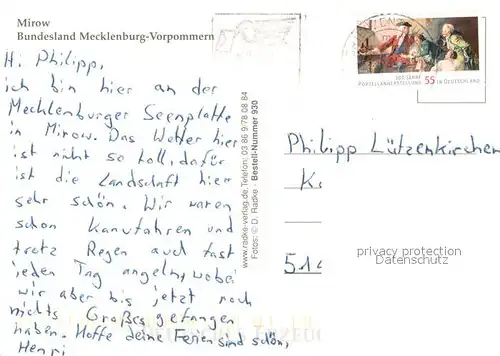 Mirow
Bundesland Mecklenburg-Vorpommern
Hi Philipp,
ich bin hier an der
Mecklenburger Seenplatte
in Mirow. Das Wetter hier
ist nicht so toll, dafür
ist die Landschaft hier
sehr schön. Wir waren
schon Kanufahren und
trotz Regen auch fast
jeden Tag angeln, wobei
wir aber bis jetzt noch
nichts Großes gefangen
haben. Hoffe deine Ferien sind schön,
Henri
www.radke-verlag.de, Telefon: 03 86 9/78 08 84
Fotos: © D. Radke · Bestell-Nummer 930
300 JAHRE
PORZELLANHERSTELLUNG 55 IN DEUTSCHLAND
Philipp Lützenkirchen
privacy protection
Datenschutz